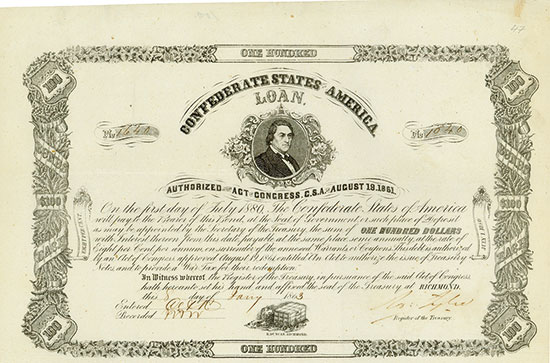 47
ONE HUNDRED
100 100
CONFEDERATE STATES AMERICA
LOAN.
No 1640 No 1640
AUTHORIZED BY ACT OF CONGRESS, C.S.A. OF AUGUST 19. 1861.
On the first day of July 1880, The Confederate States of America
will pay to the Bearer of this Bond, at the seat of Government or such place of Deposit
as may be appointed by the Secretary of the Treasury, the sum of ONE HUNDRED DOLLARS
with Interest thereon from this date, payable at the same place semi annually, at the rate of
Eight per Cent per annum, on surrender of the annexed Coupons. This debt is authorized
by an Act of Congress, approved August 19, 1861, entitled An Act to authorize the issue of Treasury
Notes and to provide a War Tax for their redemption.
$100 $100
In Witness whereof, The Register of the Treasury, in pursuance of the said Act of Congress,
hath hereunto set his hand and affixed the seal of the Treasury at RICHMOND,
this day of Jany 1863
Entered
Recorded
Register of the Treasury.
100 100
ONE HUNDRED